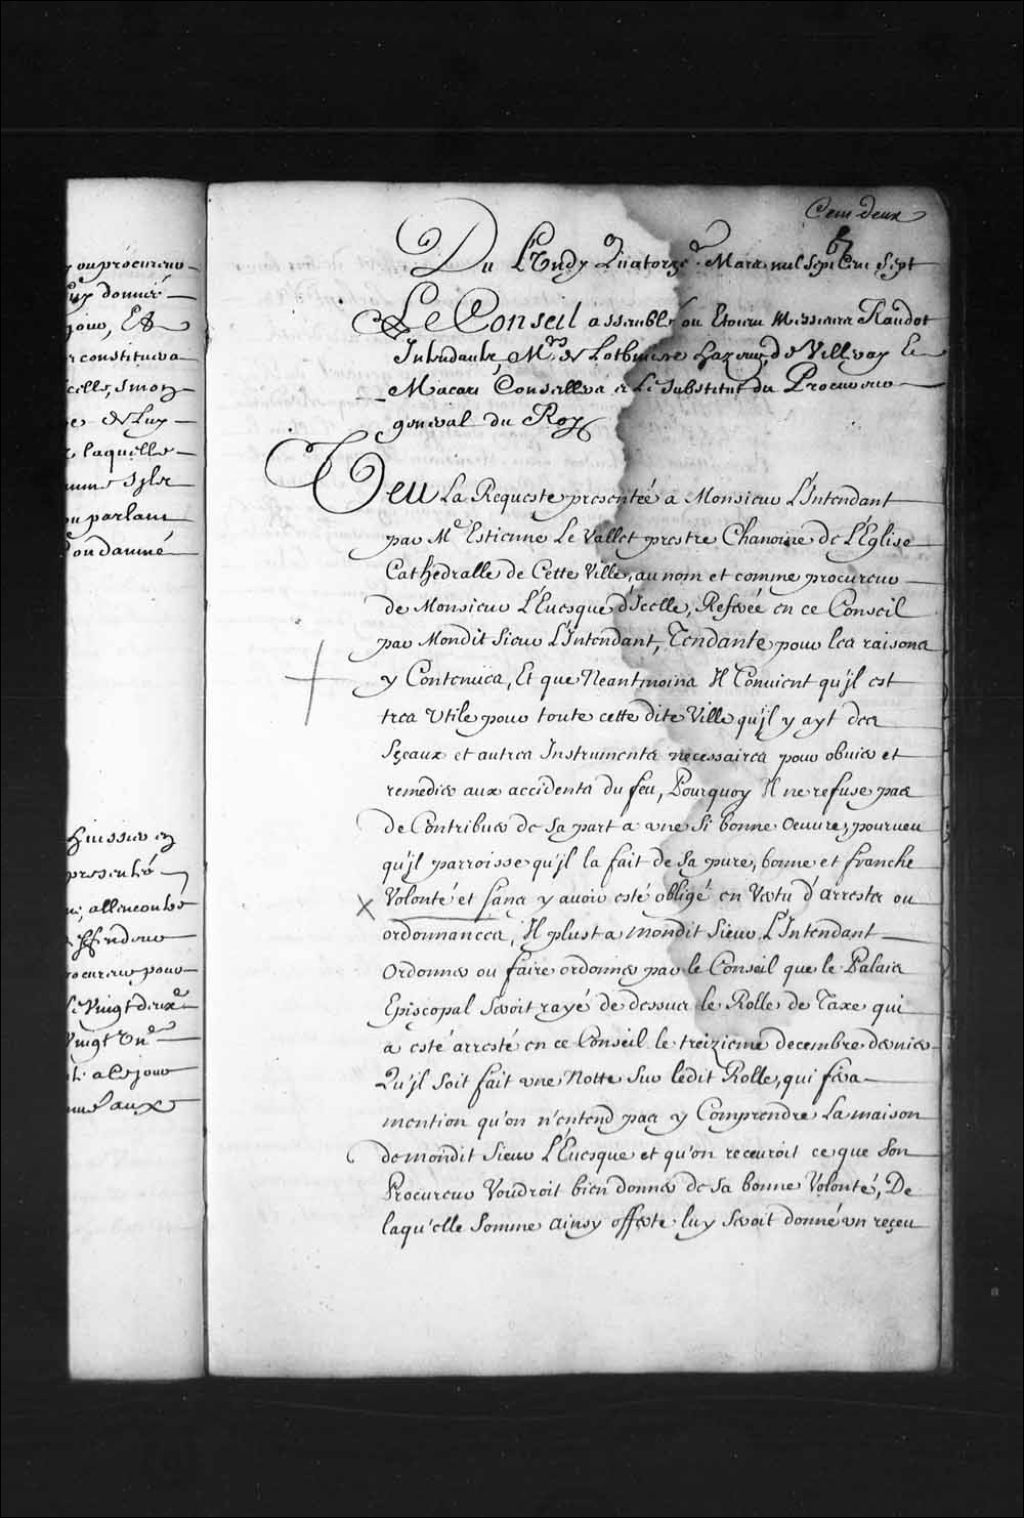 y ou procureur
luy donné
jour, Et
constituera
icelle, sinon
de Luy
laquelle
comme sy le
ou parlant
Condamné
huissier en
presenté
allencontre
deffendeur
procureur pour
le vingt deuxe
Vingt Une
à ce jour
aux
Cent deux
67
Du Lundy Quatorze.e Mars mil sept Cens Sept
Le Conseil assemblé ou Etoient Messieurs Raudot
Intendants, Mrs de Lotbiniere hazeur, de Villeray et
Macart Conseillers et Le Substitut du Procureur
general du Roy
Veu La Requeste presentée a Monsieur L'Intendant
par Me Estienne Le Vallet prestre Chanoine de L'Eglise
Cathedralle de Cette Ville, au nom et comme procureur
de Monsieur L'Evesque d'Icelle, Referée en ce Conseil
par Mondit Sieur L'Intendant, Tendante pour les raisons
y Contenües, Et que Neantmoins Il Convient qu'jl est
tres Vtile pour toute cette dite Ville qu'jl y ayt des
Sçeaux et autres Instruments necessaires pour obvier et
remedier aux accidents du feu, Pourquoy Il ne refuse pas
de Contribuer de Sa part a vne Si bonne Oeuure, pourueu
qu'jl parroisse qu'jl la fait de Sa pure, bonne et franche
Volonté et Sans y auoir esté obligé en Vertu d'arrests ou
ordonnances, Il plust a mondit Sieur L'Intendant
Ordonner ou faire ordonner par le Conseil que le Palais
Episcopal Seroit rayé de dessus le Rolle de Taxe qui
a esté arresté en ce Conseil le treizieme decembre dernier
Qu'jl Soit fait vne Notte Sur ledit Rolle, qui fera
mention qu'on n'entend pas y Comprendre La maison
de mondit Sieur L'Euesque et qu'on receuroit ce que Son
Procureur Voudroit bien donner de Sa bonne Volonté, De
laqu'elle Somme ainsy offerte luy Seroit donné vn reçeu